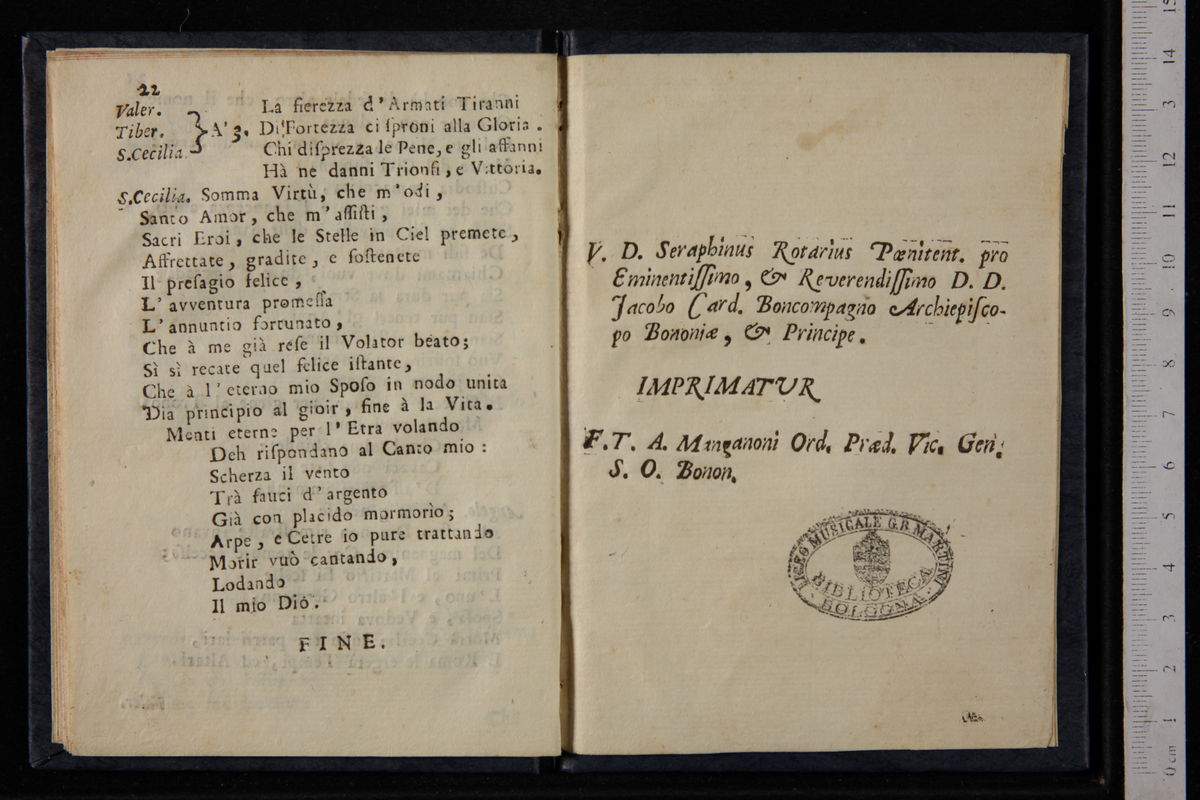 22
Valer. La fierezza d'Armati Tiranni
Tiber. } A' 3. Di Fortezza ci ſproni alla Gloria .
S.Cecilia Chi diſprezza le Pene, e gli affanni
Hà ne danni Trionfi, e Vittoria.
S.Cecilia. Somma Virtù, che m'odi,
Santo Amor, che m'aſſiſti,
Sacri Eroi, che le Stelle in Ciel premete,
Affrettate, gradite, e ſoſtenete
Il preſagio felice,
L'avventura promeſſa
L'annuntio fortunato,
Che à me già reſe il Volator beato;
Sì sì recate quel felice iſtante,
Che à l'eterno mio Spoſo in nodo unita
Dia principio al gioir, fine à la Vita.
Menti eterne per l'Etra volando
Deh riſpondano al Canto mio :
Scherza il vento
Trà fauci d'argento
Già con placido mormorìo;
Arpe, e Cetre io pure trattando
Morir vuò cantando,
Lodando
Il mio Dio.
FINE.
V. D. Seraphinus Rotarius Pœnitent. pro
Eminentiſſimo, & Reverendiſſimo D. D.
Jacobo Card. Boncompagno Archiepiſco-
po Bononiæ, & Principe.
IMPRIMATUR
F. T. A. Manganoni Ord. Præd. Vic. Gen.
S. O. Bonon.
LICEO MUSICALE G.B. MARTINI
BIBLIOTECA
BOLOGNA
0 cm 1 2 3 4 5 6 7 8 9 10 11 12 13 14 15